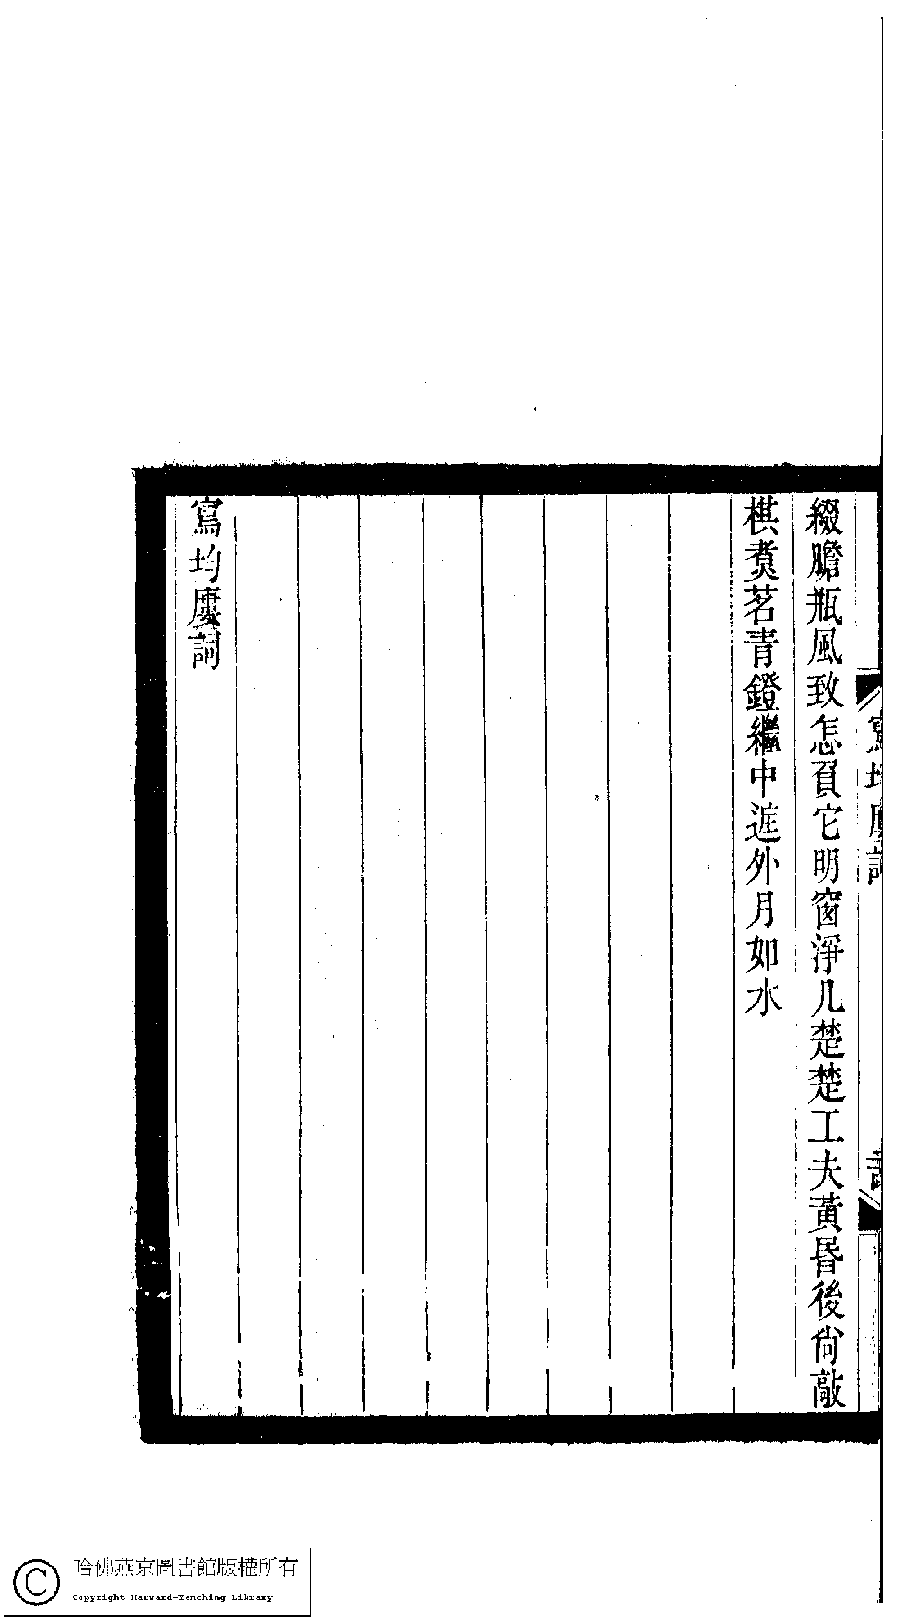 綴膽瓶風致怎負它明窗淨几楚楚工夫黃昬後尙敲
棋煑茗青鐙繼中遮外月如水
寫均廔詞
寫均廔詞
哈佛燕京圖書館版權所有
Copyright Harvard-Yenching Library